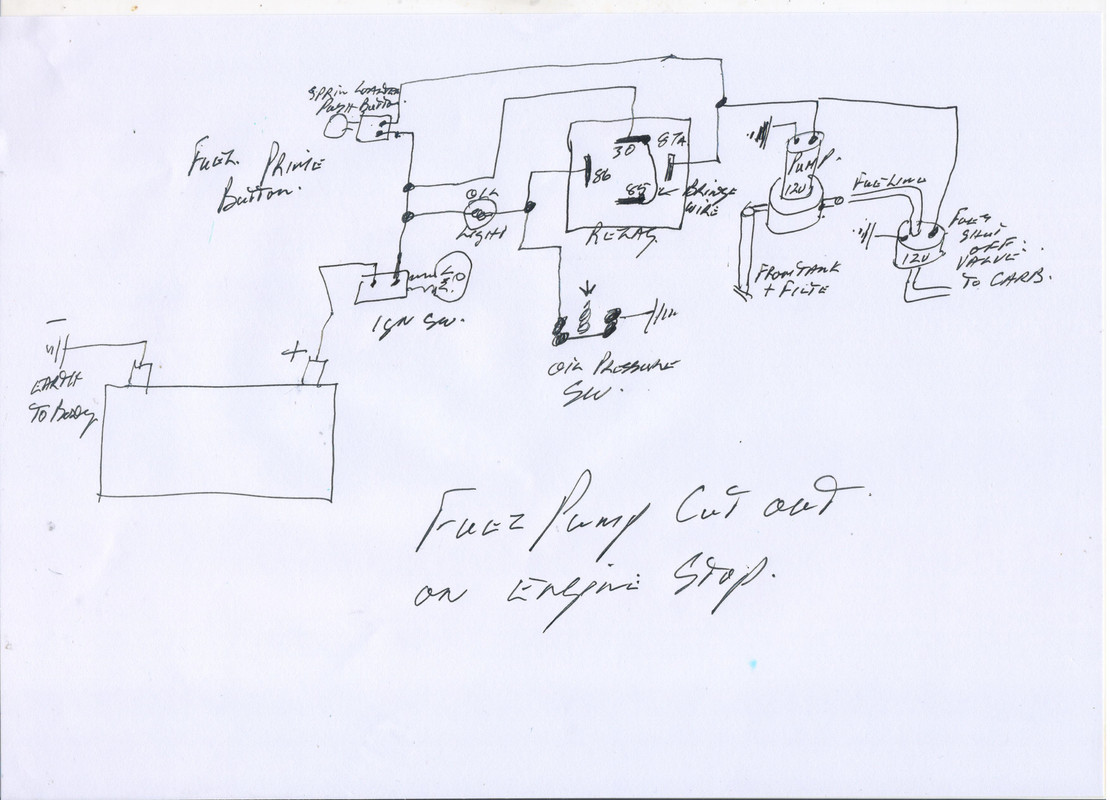 SPRIN LOADED
PUSH BUTTON
FUEL PRIME
BUTTON.
OIL
LIGHT
30
87A
86
85
BRIDGE
WIRE
RELAY
PUMP.
12V
FUEL LINE
FUEL
SHUT
OFF
VALVE
12V
TO CARB.
FROM TANK
+ FILTE
IGN SW.
OIL PRESSURE
SW.
-
+
EARTH
TO BODY
FUEL PUMP CUT OUT
ON ENGINE STOP.